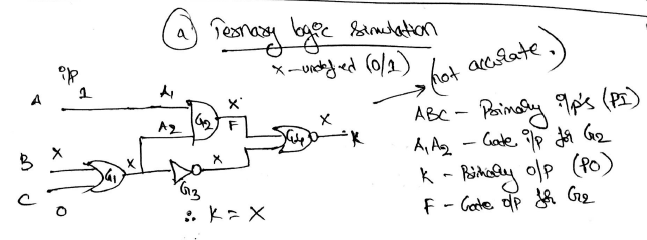 (a) Ternary logic simulation
X - undefined (0/1)
(not accurate.)
i/p
A 1 A1
X
G2
F
A2
X
G4
K
B X
X
X
G1
G3
C
0
∴ K = X
ABC - Primary i/p's (PI)
A1A2 - Gate i/p for G2
K - Primary o/p (PO)
F - Gate o/p for G2